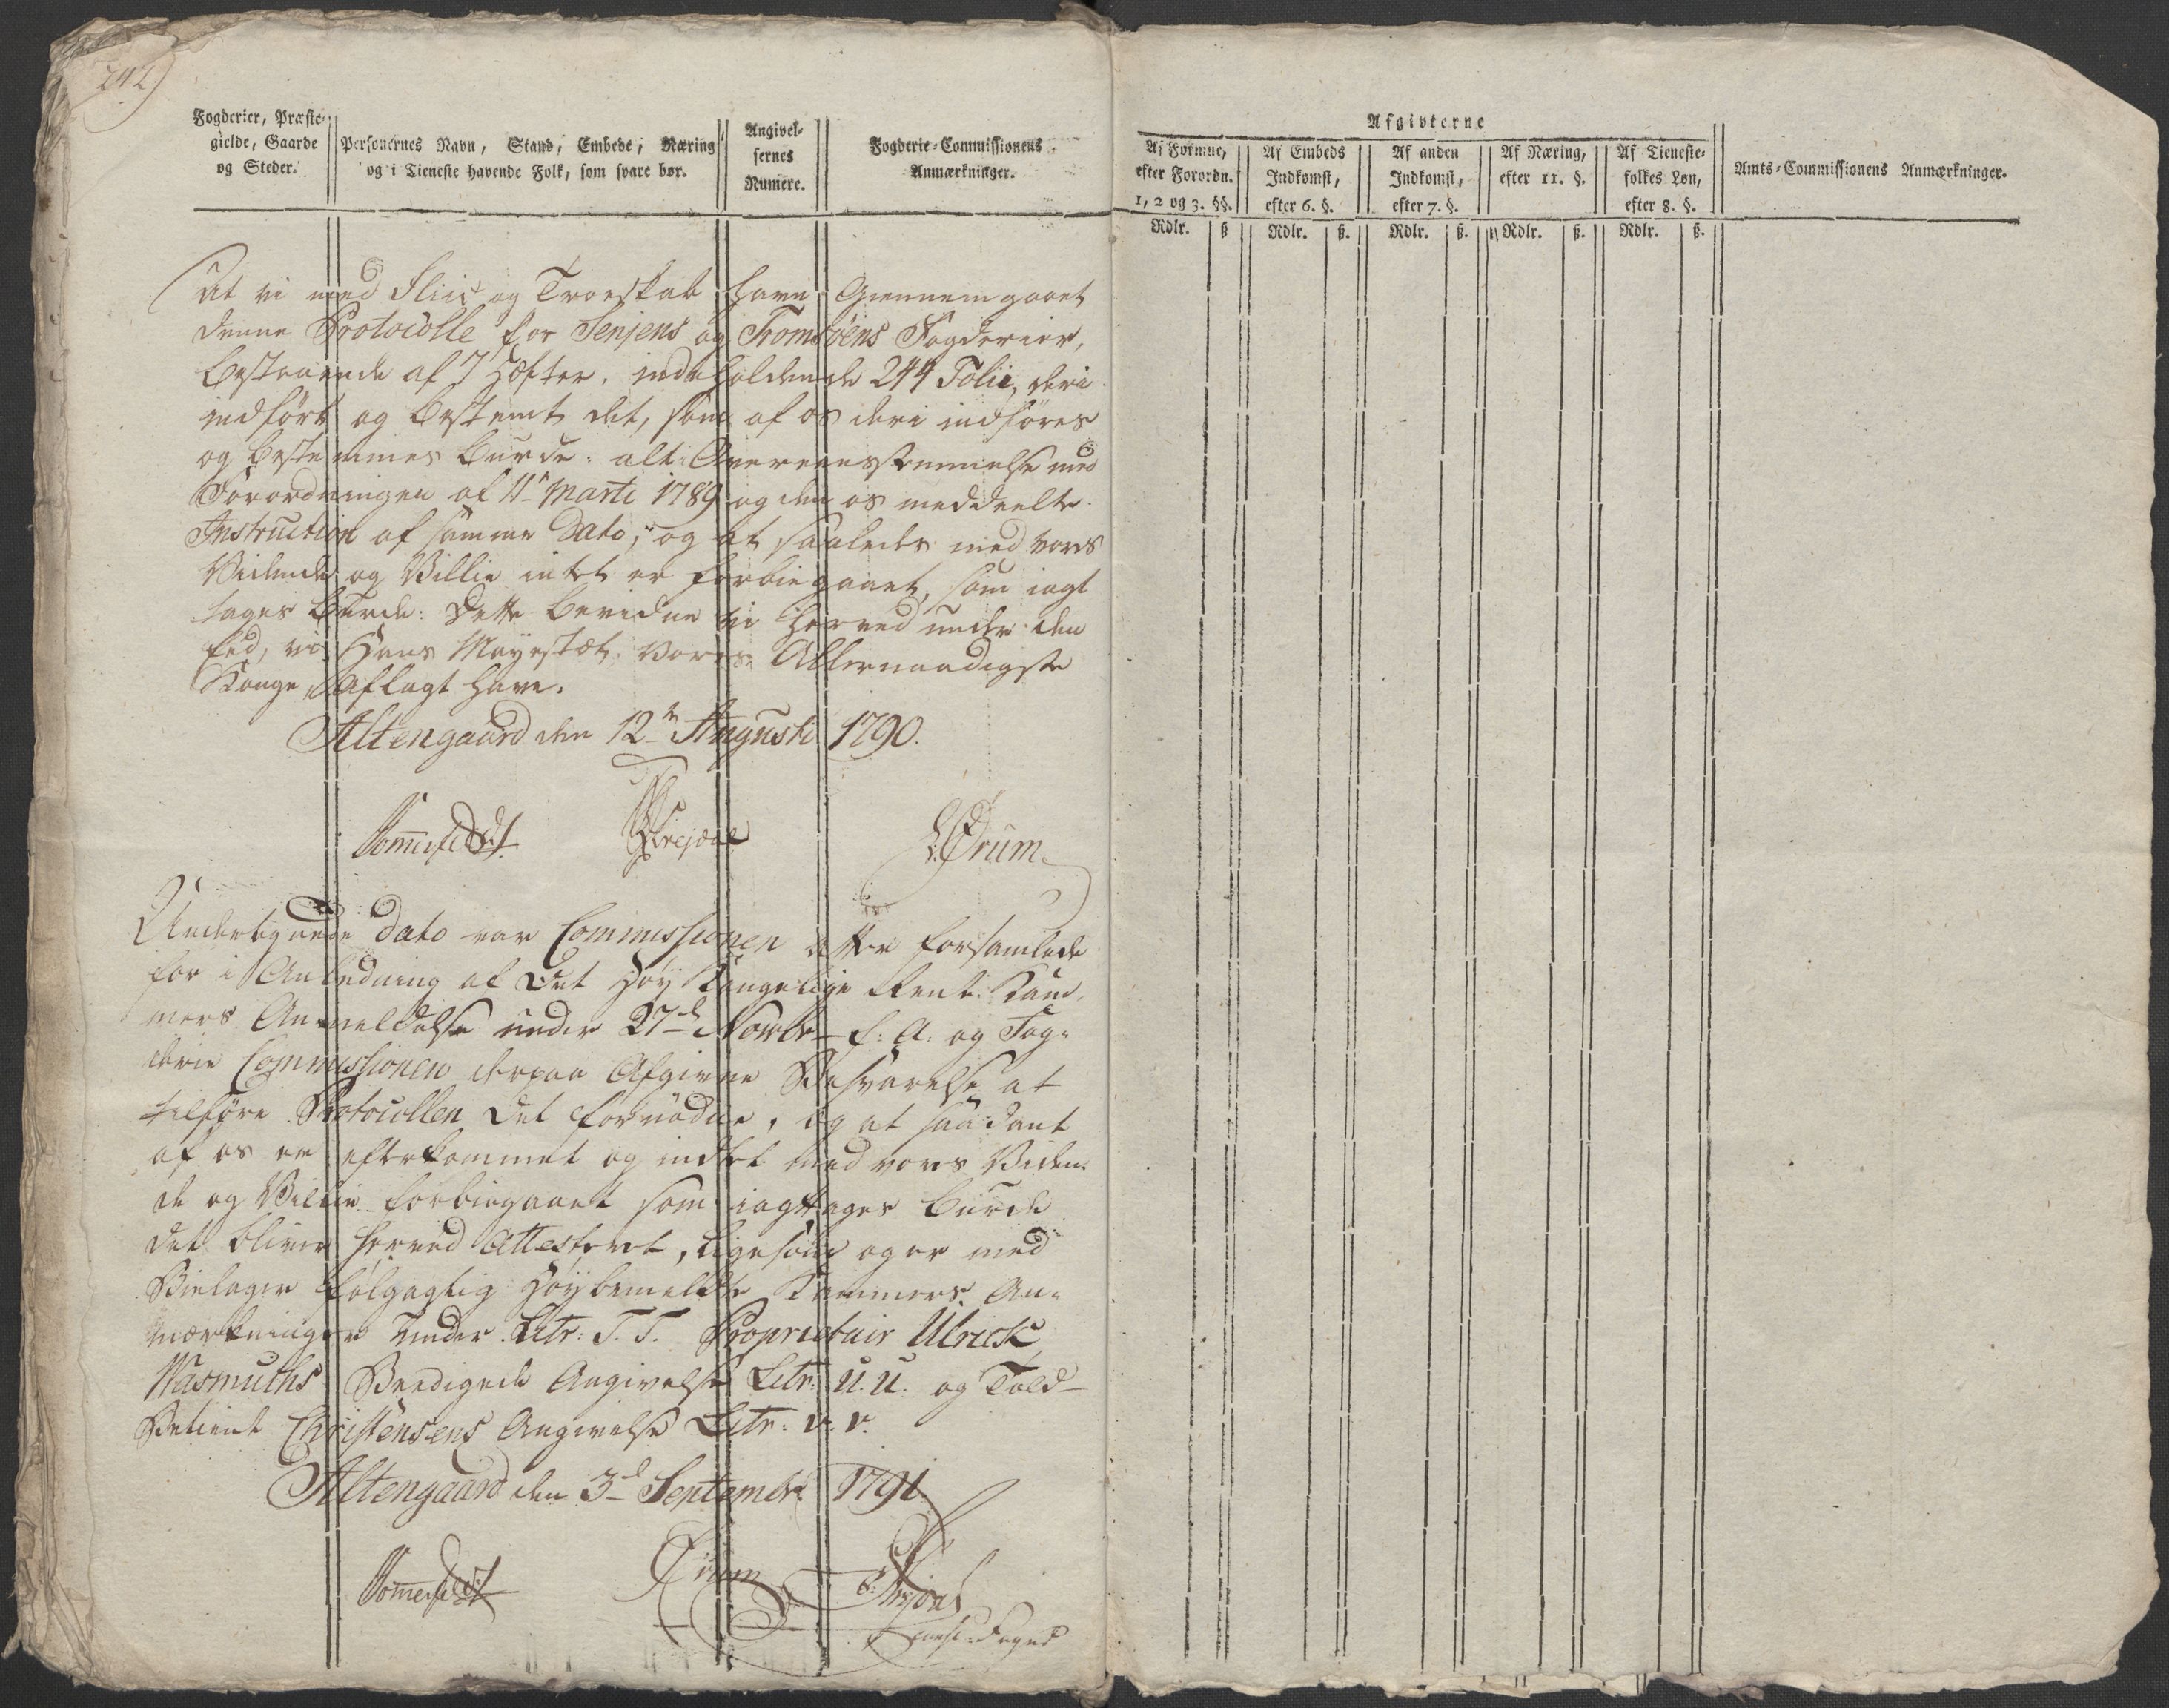 242
Fogderier, Præste-
gielde, Gaarde
og Steder.
Personernes Navn, Stand, Embede, Næring
og i Tieneste havende Folk, som svare bør.
Angivel-
sernes
Numere.
Fogderie-Commissionens
Anmærkninger.
Afgivterne
Af Formue,
efter Forordn.
1, 2 og 3. §§.
Af Embeds
Indkomst,
efter 6. §.
Af anden
Indkomst,
efter 7. §.
Af Næring,
efter 11. §.
Af Tieneste-
folkes Løn,
efter 8. §.
Amts-Commissionens Anmærkninger.
Rdlr. ß Rdlr. ß. Rdlr. ß. Rdlr. ß. Rdlr. ß.
At vi med Fliid og Troeskab have Giennemgaaet
denne Protocolle for Senjens og Tromsöens Fogderier,
bestaaende af 7 Hæfter, indeholdende 244 Folier, deri
indfört og bestemt det, som af os deri indföres
og bestemmes burde: alt i Overeensstemmelse med
Forordningen af 11te Marti 1789 og den os meddeelte
Instruction af samme Dato; og at saaledes med vores
Vidende og Villie intet er forbiegaaet, som iagt
tages burde: Dette bevidne vi herved under den
Eed, vi Hans Mayestæt vores Allernaadigste
Konge, Aflagt have.
Altengaard den 12te Augusti 1790.
Sommerfeldt
Ørum
Undertegnede Dato var Commissionen atter forsamlede
for i Anledning af Det Höy Kongelige Rente Kam-
mers Anmeldelse under 27de Novbr f: A: og Fog-
derie Commissionen derpaa Afgivne Besvarelse at
tilföre Protocollen det fornödne, og at saadant
af os er efterkommet og indtet med vores Viden-
de og Villie forbiegaaet som iagttages burde
det bliver herved Attesteret, ligesom og er med
Bielager fölgagtig Höybemeldte Kammers An-
mærkninger under Litr: T. T. Proprietair Ulrick
Wasmuths Beedigede Angivelse Litr: U. U. og Told-
Betient Christensens Angivelse Litr: V. V.
Altengaard den 3de Septembr 1791.
Sommerfeldt
Ørum
const: Foged